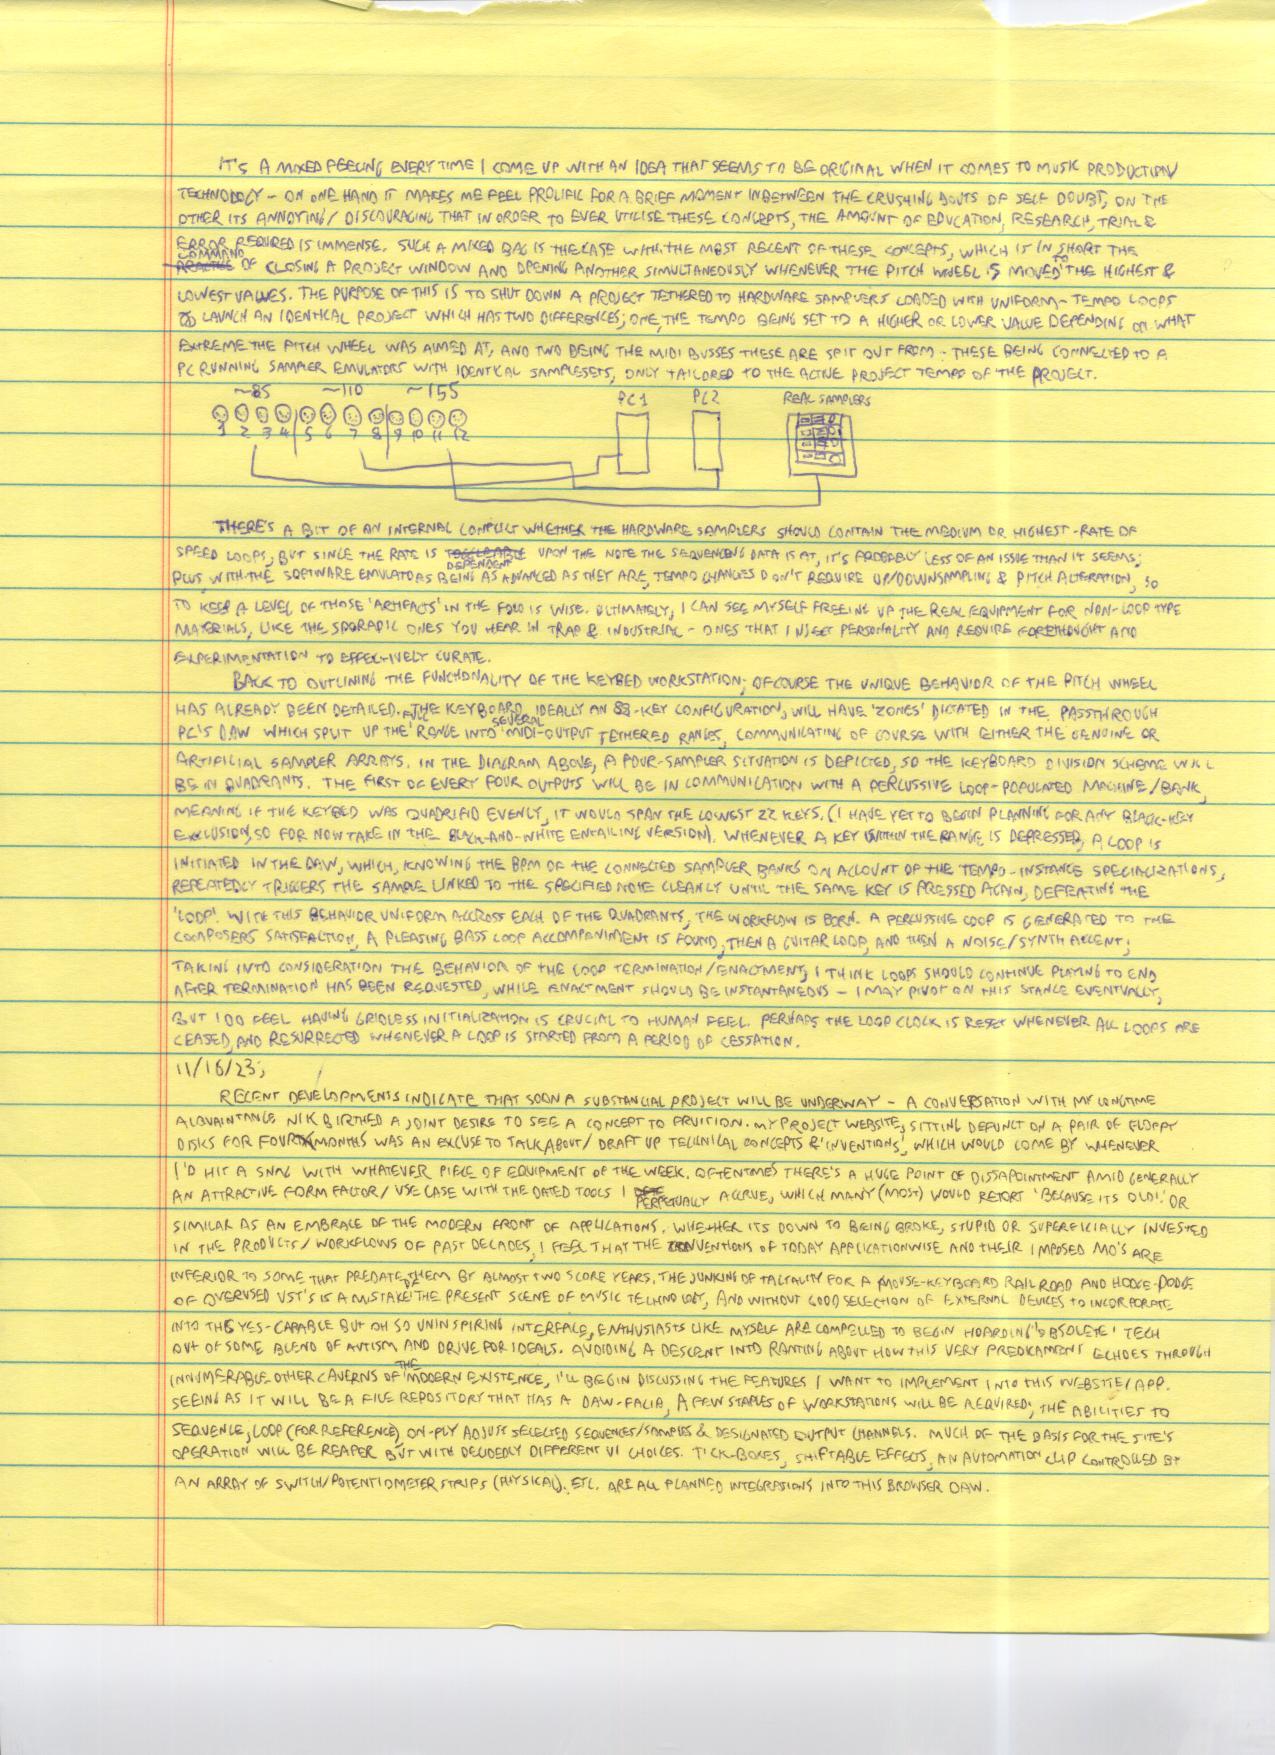 IT'S A MIXED FEELING EVERY TIME I COME UP WITH AN IDEA THAT SEEMS TO BE ORIGINAL WHEN IT COMES TO MUSIC PRODUCTION
TECHNOLOGY - ON ONE HAND IT MAKES ME FEEL PROLIFIC FOR A BRIEF MOMENT INBETWEEN THE CRUSHING BOUTS OF SELF DOUBT, ON THE
OTHER ITS ANNOYING/DISCOURAGING THAT IN ORDER TO EVER UTILISE THESE CONCEPTS, THE AMOUNT OF EDUCATION, RESEARCH, TRIAL &
ERROR REQUIRED IS IMMENSE. SUCH A MIXED BAG IS THE CASE WITH THE MOST RECENT OF THESE CONCEPTS, WHICH IS IN SHORT THE
COMMAND OF CLOSING A PROJECT WINDOW AND OPENING ANOTHER SIMULTANEOUSLY WHENEVER THE PITCH WHEEL IS MOVED TO THE HIGHEST &
LOWEST VALUES. THE PURPOSE OF THIS IS TO SHUT DOWN A PROJECT TETHERED TO HARDWARE SAMPLERS LOADED WITH UNIFORM-TEMPO LOOPS
& LAUNCH AN IDENTICAL PROJECT WHICH HAS TWO DIFFERENCES; ONE, THE TEMPO BEING SET TO A HIGHER OR LOWER VALUE DEPENDING ON WHAT
EXTREME THE PITCH WHEEL WAS AIMED AT, AND TWO BEING THE MIDI BUSSES THESE ARE SPIT OUT FROM - THESE BEING CONNECTED TO A
PC RUNNING SAMPLER EMULATORS WITH IDENTICAL SAMPLESETS, ONLY TAILORED TO THE ACTIVE PROJECT TEMPO OF THE PROJECT.
~85 ~110 ~155 PC1 PC2 REAL SAMPLERS
1 2 3 4 5 6 7 8 9 10 11 12
THERE'S A BIT OF AN INTERNAL CONFLICT WHETHER THE HARDWARE SAMPLERS SHOULD CONTAIN THE MEDIUM OR HIGHEST-RATE OF
SPEED LOOPS, BUT SINCE THE RATE IS DEPENDENT UPON THE NOTE THE SEQUENCING DATA IS AT, IT'S PROBABLY LESS OF AN ISSUE THAN IT SEEMS;
PLUS WITH THE SOFTWARE EMULATORS BEING AS ADVANCED AS THEY ARE, TEMPO CHANGES DON'T REQUIRE UP/DOWNSAMPLING & PITCH ALTERATION, SO
TO KEEP A LEVEL OF THOSE 'ARTIFACTS' IN THE FOLD IS WISE. ULTIMATELY, I CAN SEE MYSELF FREEING UP THE REAL EQUIPMENT FOR NON-LOOP TYPE
MATERIALS, LIKE THE SPORADIC ONES YOU HEAR IN TRAP & INDUSTRIAL - ONES THAT INJECT PERSONALITY AND REQUIRE FORETHOUGHT AND
EXPERIMENTATION TO EFFECTIVELY CURATE.
BACK TO OUTLINING THE FUNCTIONALITY OF THE KEYBED WORKSTATION; OFCOURSE THE UNIQUE BEHAVIOR OF THE PITCH WHEEL
HAS ALREADY BEEN DETAILED. THE KEYBOARD, IDEALLY AN 88-KEY CONFIGURATION, WILL HAVE 'ZONES' DICTATED IN THE PASSTHROUGH
PC'S DAW WHICH SPLIT UP THE FULL RANGE INTO SEVERAL MIDI-OUTPUT TETHERED RANGES, COMMUNICATING OF COURSE WITH EITHER THE GENUINE OR
ARTIFICIAL SAMPLER ARRAYS. IN THE DIAGRAM ABOVE, A FOUR-SAMPLER SITUATION IS DEPICTED, SO THE KEYBOARD DIVISION SCHEME WILL
BE IN QUADRANTS. THE FIRST OF EVERY FOUR OUTPUTS WILL BE IN COMMUNICATION WITH A PERCUSSIVE LOOP-POPULATED MACHINE/BANK,
MEANING IF THE KEYBED WAS QUADRIFID EVENLY, IT WOULD SPAN THE LOWEST 22 KEYS. (I HAVE YET TO BEGIN PLANNING FOR ANY BLACK-KEY
EXCLUSION, SO FOR NOW TAKE IN THE BLACK-AND-WHITE ENTAILING VERSION). WHENEVER A KEY WITHIN THE RANGE IS DEPRESSED, A LOOP IS
INITIATED IN THE DAW, WHICH, KNOWING THE BPM OF THE CONNECTED SAMPLER BANKS ON ACCOUNT OF THE TEMPO-INSTANCE SPECIALIZATIONS,
REPEATEDLY TRIGGERS THE SAMPLE LINKED TO THE SPECIFIED NOTE CLEANLY UNTIL THE SAME KEY IS PRESSED AGAIN, DEFEATING THE
'LOOP'. WITH THIS BEHAVIOR UNIFORM ACCROSS EACH OF THE QUADRANTS, THE WORKFLOW IS BORN. A PERCUSSIVE LOOP IS GENERATED TO THE
COMPOSERS SATISFACTION, A PLEASING BASS LOOP ACCOMPANIMENT IS FOUND, THEN A GUITAR LOOP, AND THEN A NOISE/SYNTH ACCENT;
TAKING INTO CONSIDERATION THE BEHAVIOR OF THE LOOP TERMINATION/ENACTMENT, I THINK LOOPS SHOULD CONTINUE PLAYING TO END
AFTER TERMINATION HAS BEEN REQUESTED, WHILE ENACTMENT SHOULD BE INSTANTANEOUS - I MAY PIVOT ON THIS STANCE EVENTUALLY,
BUT I DO FEEL HAVING GRIDLESS INITIALIZATION IS CRUCIAL TO HUMAN FEEL. PERHAPS THE LOOP CLOCK IS RESET WHENEVER ALL LOOPS ARE
CEASED, AND RESURRECTED WHENEVER A LOOP IS STARTED FROM A PERIOD OF CESSATION.
11/16/23;
RECENT DEVELOPMENTS INDICATE THAT SOON A SUBSTANCIAL PROJECT WILL BE UNDERWAY - A CONVERSATION WITH MY LONGTIME
AQUAINTANCE NIK BIRTHED A JOINT DESIRE TO SEE A CONCEPT TO FRUITION. MY PROJECT WEBSITE, SITTING DEFUNCT ON A PAIR OF FLOPPY
DISKS FOR FOUR MONTHS WAS AN EXCUSE TO TALK ABOUT/DRAFT UP TECHNICAL CONCEPTS & 'INVENTIONS', WHICH WOULD COME BY WHENEVER
I'D HIT A SNAG WITH WHATEVER PIECE OF EQUIPMENT OF THE WEEK. OFTENTIMES THERE'S A HUGE POINT OF DISSAPOINTMENT AMID GENERALLY
AN ATTRACTIVE FORM FACTOR/USE CASE WITH THE DATED TOOLS I PERPETUALLY ACCRUE, WHICH MANY (MOST) WOULD RETORT 'BECAUSE ITS OLD!' OR
SIMILAR AS AN EMBRACE OF THE MODERN FRONT OF APPLICATIONS. WHETHER ITS DOWN TO BEING BROKE, STUPID OR SUPERFICIALLY INVESTED
IN THE PRODUCTS/WORKFLOWS OF PAST DECADES, I FEEL THAT THE CONVENTIONS OF TODAY APPLICATIONWISE AND THEIR IMPOSED MO'S ARE
INFERIOR TO SOME THAT PREDATE THEM BY ALMOST TWO SCORE YEARS. THE JUNKING OF TACTALITY FOR A MOUSE-KEYBOARD RAILROAD AND HODGE-PODGE
OF OVERUSED VST'S IS A MISTAKE OF THE PRESENT SCENE OF MUSIC TECHNOLOGY, AND WITHOUT GOOD SELECTION OF EXTERNAL DEVICES TO INCORPORATE
INTO THIS YES-CAPABLE BUT OH SO UNINSPIRING INTERFACE, ENTHUSIASTS LIKE MYSELF ARE COMPELLED TO BEGIN HOARDING 'OBSOLETE' TECH
OUT OF SOME BLEND OF AUTISM AND DRIVE FOR IDEALS. AVOIDING A DESCENT INTO RANTING ABOUT HOW THIS VERY PREDICAMENT ECHOES THROUGH
INNUMERABLE OTHER CAVERNS OF THE MODERN EXISTENCE, I'LL BEGIN DISCUSSING THE FEATURES I WANT TO IMPLEMENT INTO THIS WEBSITE/APP.
SEEING AS IT WILL BE A FILE REPOSITORY THAT HAS A DAW-FACIA, A FEW STAPLES OF WORKSTATIONS WILL BE REQUIRED; THE ABILITIES TO
SEQUENCE, LOOP (FOR REFERENCE), ON-FLY ADJUST SELECTED SEQUENCES/SAMPLES & DESIGNATED OUTPUT CHANNELS. MUCH OF THE BASIS FOR THE SITE'S
OPERATION WILL BE REAPER BUT WITH DECIDEDLY DIFFERENT UI CHOICES. TICK-BOXES, SHIFTABLE EFFECTS, AN AUTOMATION CLIP CONTROLLED BY
AN ARRAY OF SWITCH/POTENTIOMETER STRIPS (PHYSICAL), ETC. ARE ALL PLANNED INTEGRATIONS INTO THIS BROWSER DAW.